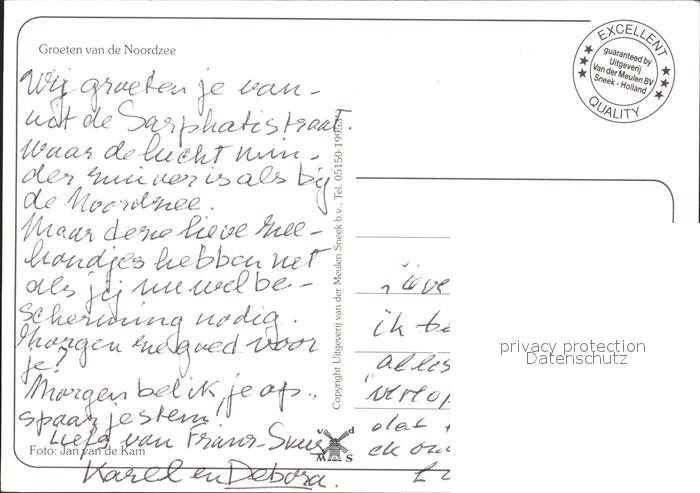 Groeten van de Noordzee
EXCELLENT
guaranteed by
Uitgeverij
Van der Meulen BV
Sneek - Holland
QUALITY
Wij groeten je van-
uit de Sarphatistraat.
waar de lucht min-
der zuiver is als bij
de Noordzee.
Maar deze lieve zee-
hondjes hebben net
als jij nu wel be-
scherming nodig.
Zorgen ze goed voor
je?
Morgen bel ik je op.,
spaar je stem!
Liefs van Frans-
Karel en Debora.
Foto: Jan van de Kam
Copyright Uitgeverij van der Meulen Sneek b.v., Tel. 05150-19953
v d
M S
ik
alles
dat
privacy protection
Datenschutz